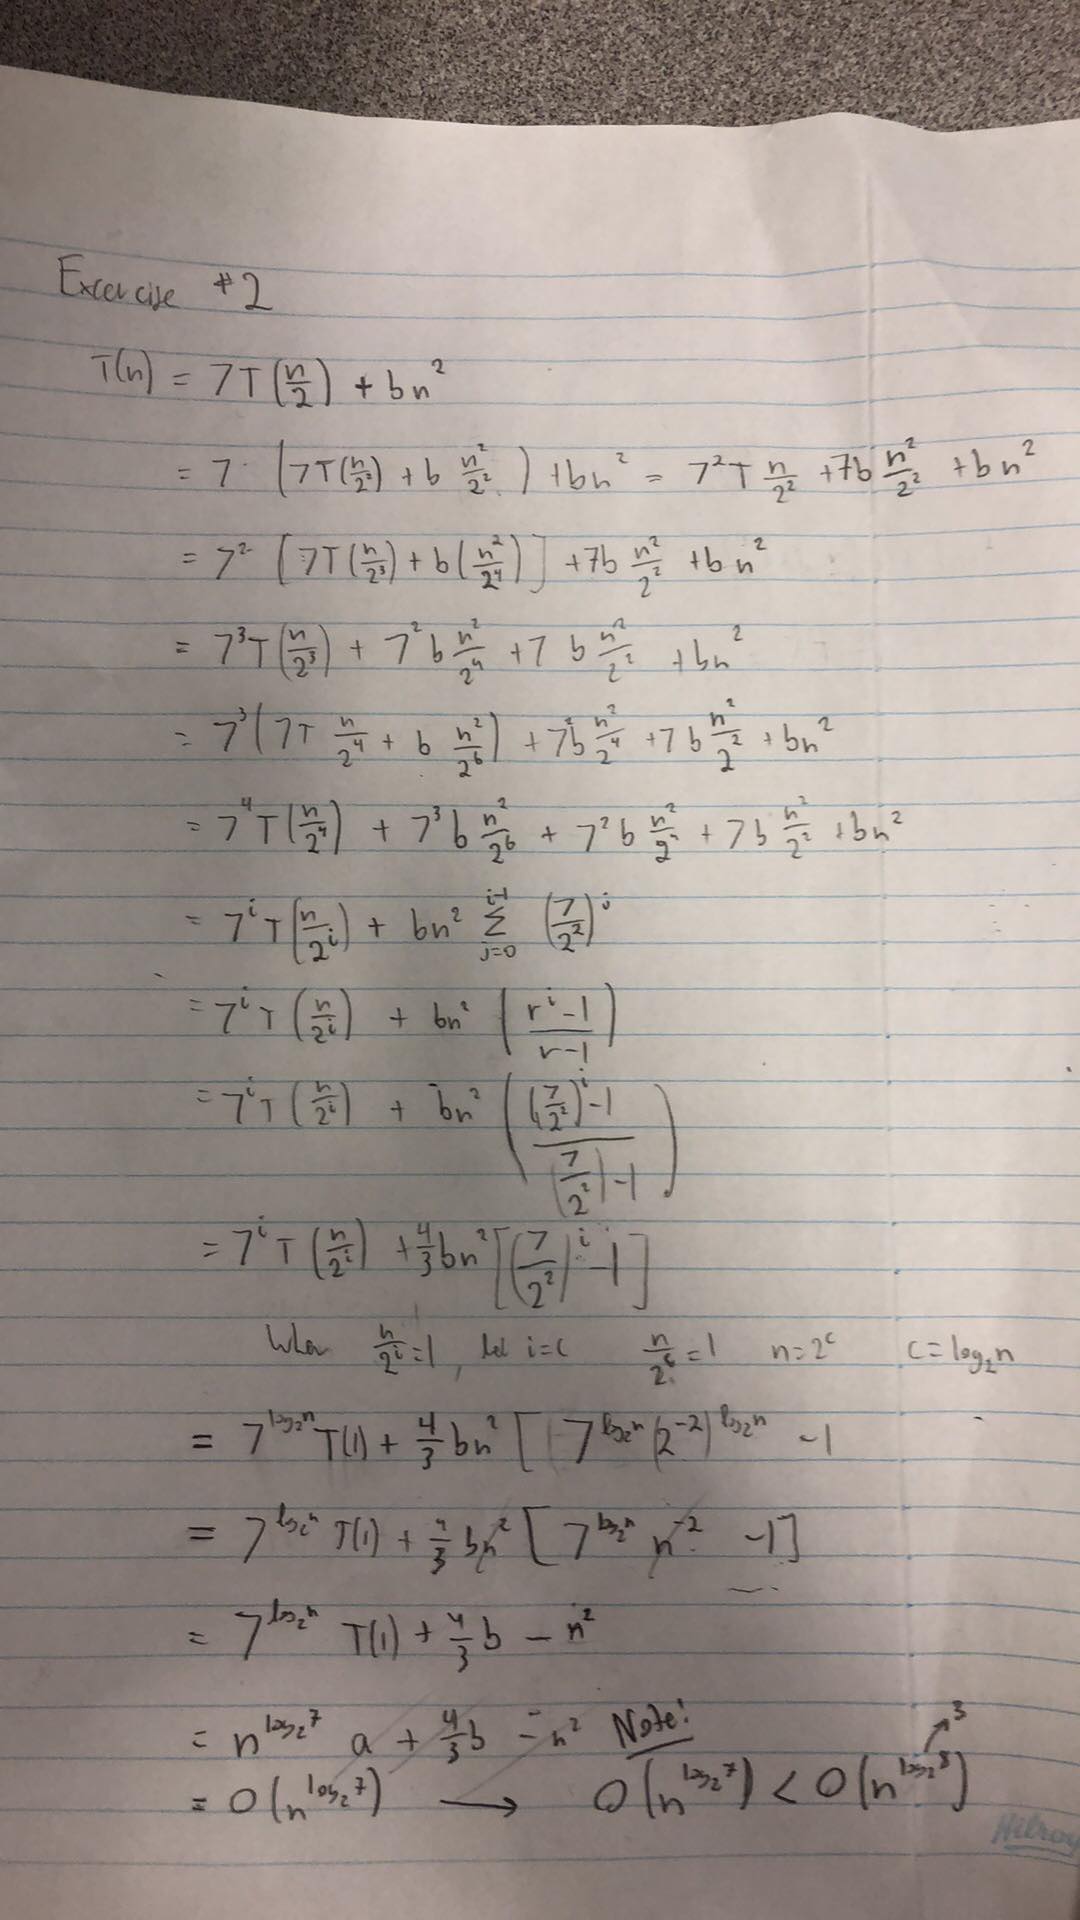 Excercise #2
T(n) = 7T(n/2) + bn²
= 7 (7T(n/2²) + b n²/2²) + bn² = 7²T n/2² + 7b n²/2² + bn²
= 7² [7T(n/2³) + b(n²/2⁴)] + 7b n²/2² + bn²
= 7³T(n/2³) + 7²b n²/2⁴ + 7 b n²/2² + bn²
= 7³(7T n/2⁴ + b n²/2⁶) + 7²b n²/2⁴ + 7b n²/2² + bn²
= 7⁴T(n/2⁴) + 7³b n²/2⁶ + 7²b n²/2⁴ + 7b n²/2² + bn²
= 7ⁱT(n/2ⁱ) + bn² Σ_{j=0}^{i-1} (7/2²)ʲ
= 7ⁱT(n/2ⁱ) + bn² ((rⁱ-1)/(r-1))
= 7ⁱT(n/2ⁱ) + bn² (((7/2²)ⁱ-1)/((7/2²)-1))
= 7ⁱT(n/2ⁱ) + 4/3 bn² [(7/2²)ⁱ-1]
When n/2ⁱ=1, let i=c n/2ᶜ=1 n=2ᶜ c=log₂n
= 7^{log₂n} T(1) + 4/3 bn² [7^{log₂n} (2⁻²)^{log₂n} -1
= 7^{log₂n} T(1) + 4/3 bn² [7^{log₂n} n⁻² -1]
= 7^{log₂n} T(1) + 4/3 b - n²
= n^{log₂7} a + 4/3 b - n² Note!
= O(n^{log₂7}) → O(n^{log₂7}) < O(n^{log₂8}) 3
Hilroy